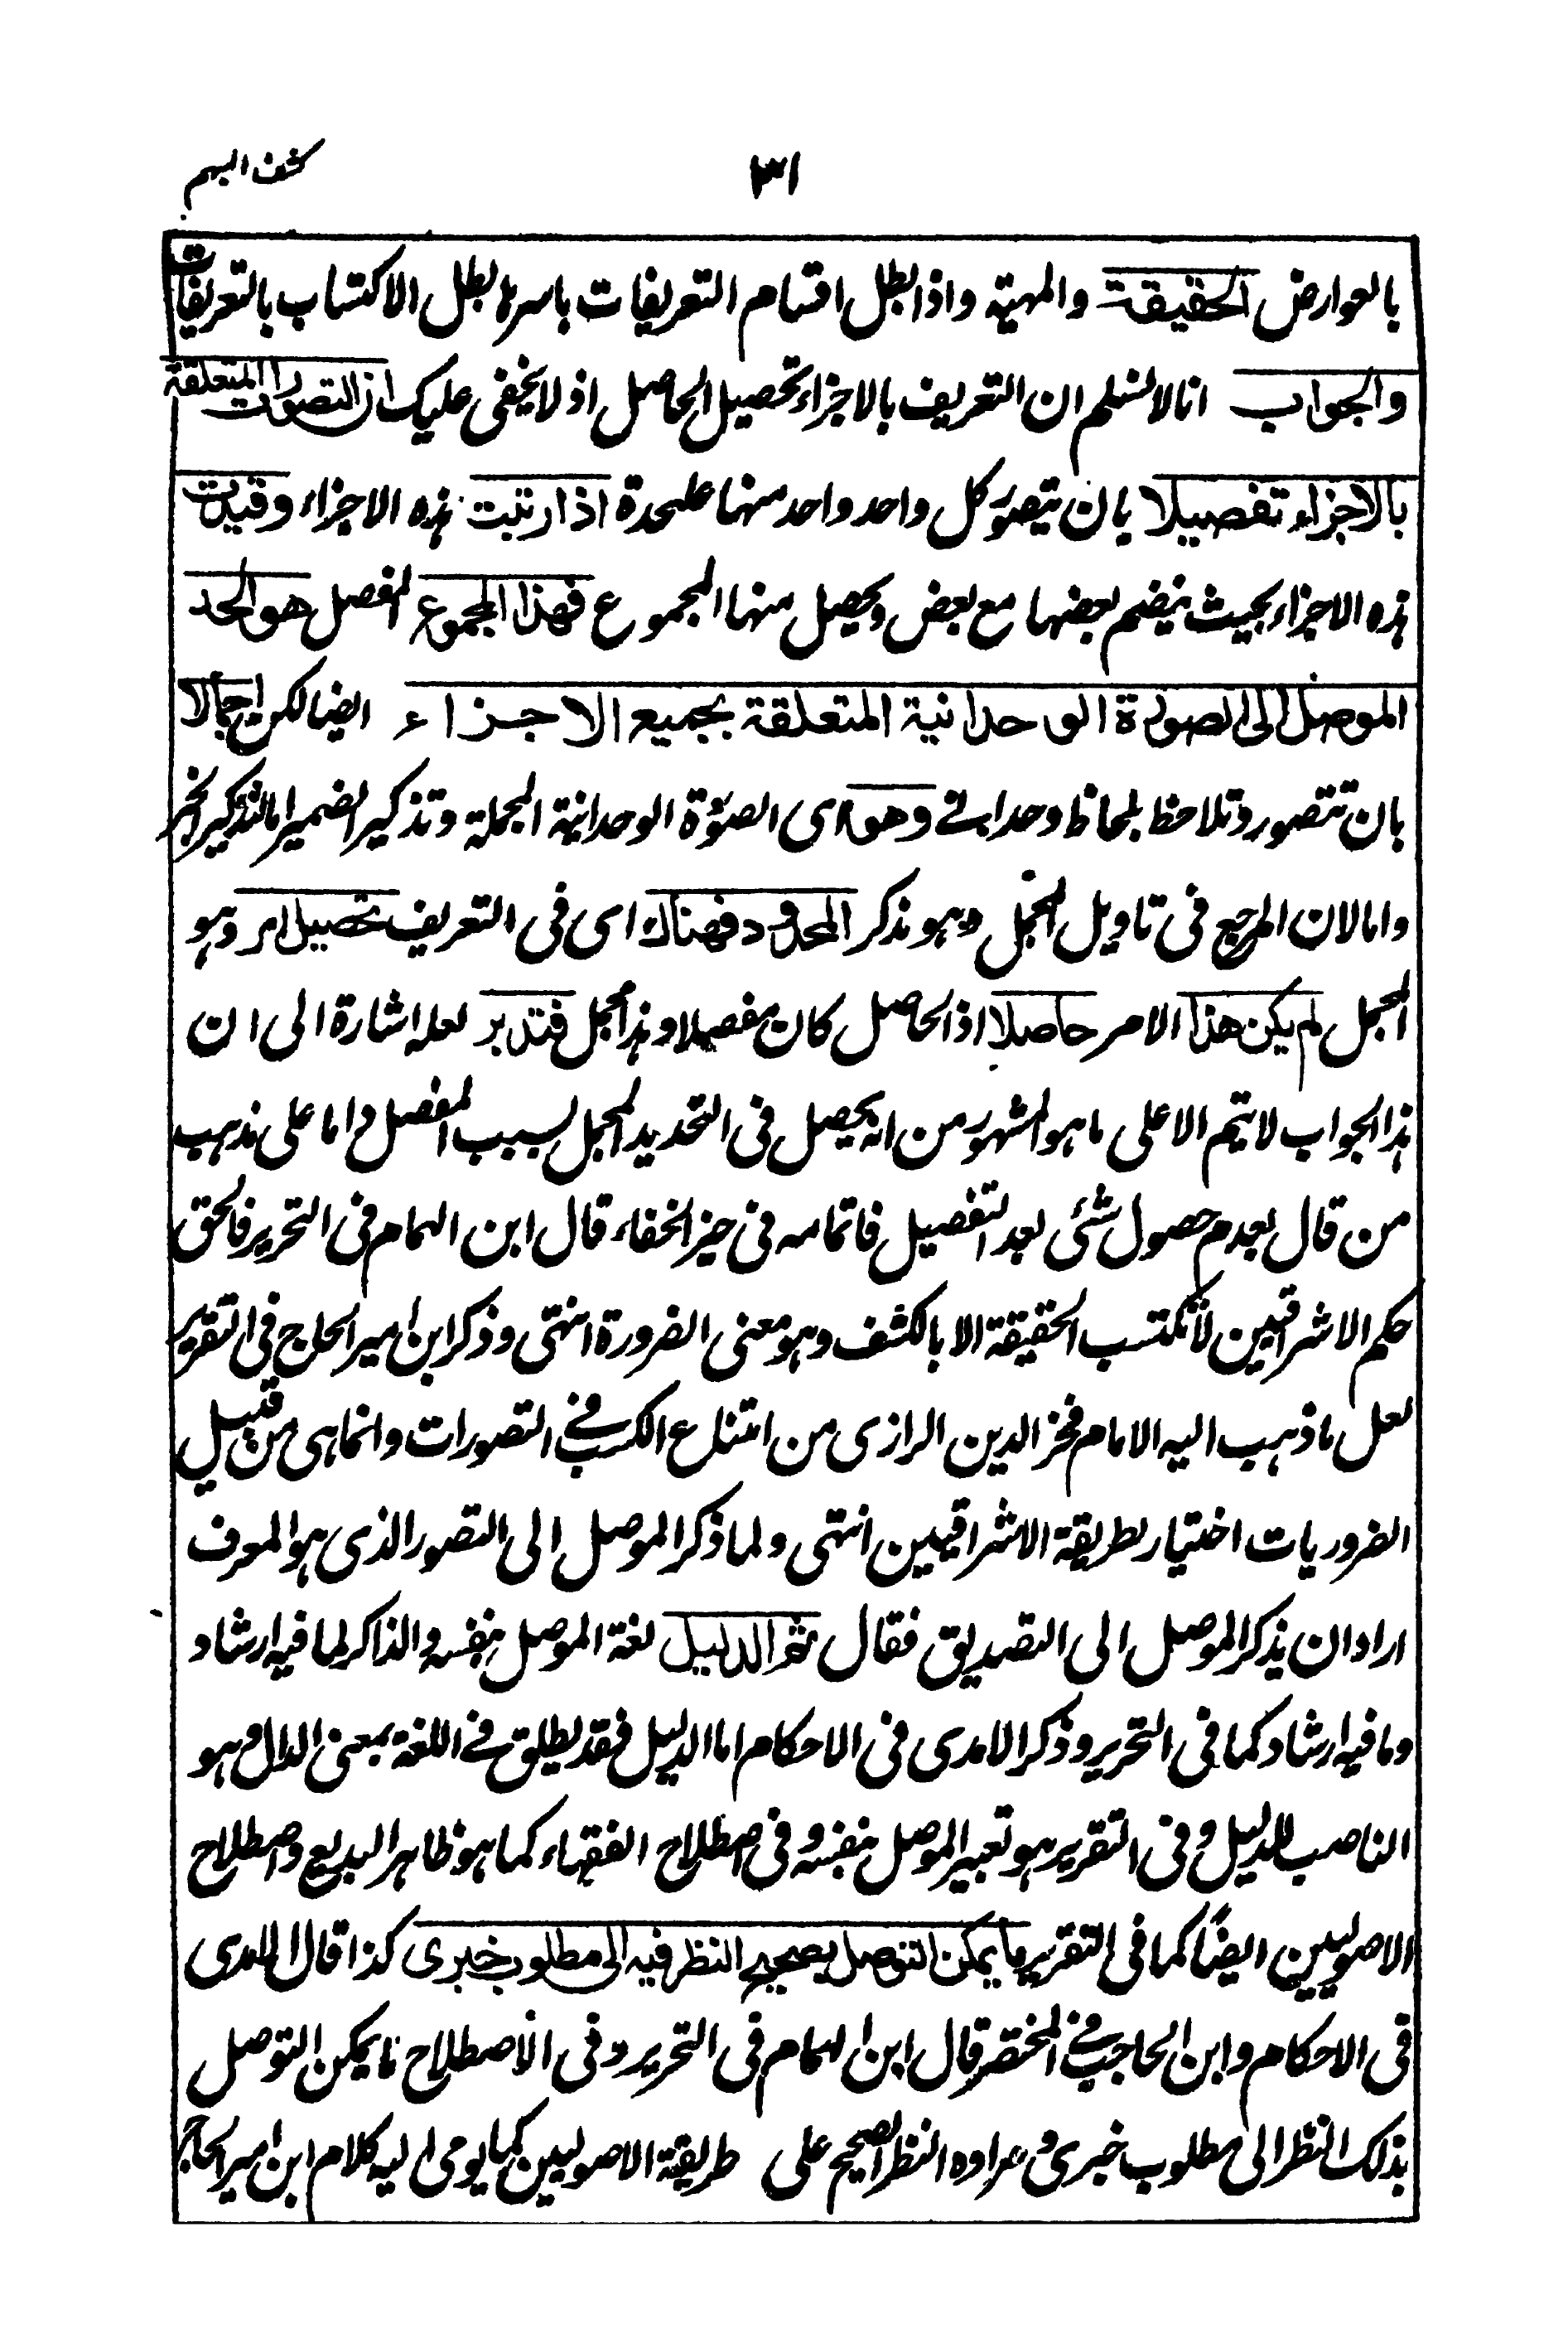 كشف المبهم
٣١
بالعوارض الحقيقة والمهية واذا بطل اقسام التعريفات باسرها بطل الاكتساب بالتعريفات
والجواب انا لا نسلم ان التعريف بالاجزاء تحصيل الحاصل اذ لا يخفى عليك ان التصورات المتعلقة
بالاجزاء تفصيلا بان يتصور كل واحد واحد منها علىحدة اذا رتبت هذه الاجزاء وقيدت
هذه الاجزاء بحيث ينضم بعضها مع بعض ويحصل منها المجموع فهذا المجموع المفصل هو الحد
الموصل الى الصورة الوحدانية المتعلقة بجميع الاجزاء ايضا لكن اجمالا
بان تتصور وتلاحظ بلحاظ وحدانى وهو اى الصورة الوحدانية المجملة وتذكير الضمير اما لتذكير الخبر
واما لان المرجع فى تاويل المجمل وهو مذكر المحدود فهناك اى فى التعريف تحصيل امر وهو
المجمل لم يكن هذا الامر حاصلا اذ الحاصل كان مفصلا وهذا مجمل فتدبر لعله اشارة الى ان
هذا الجواب لا يتم الا على ما هو المشهور من انه يحصل فى التحديد المجمل بسبب المفصل واما على مذهب
من قال بعدم حصول شئى بعد التفصيل فاتمامه فى حيز الخفاء قال ابن الهمام فى التحرير فالحق
حكم الاشراقيين لا تكتسب الحقيقة الا بالكشف وهو معنى الضرورة انتهى وذكر ابن امير الحاج فى التقرير
لعل ما ذهب اليه الامام فخر الدين الرازى من امتناع الكسب فى التصورات وانما هى من قبيل
الضروريات اختيار لطريقة الاشراقيين انتهى ولما ذكر الموصل الى التصور الذى هو المعرف
اراد ان يذكر الموصل الى التصديق فقال ثم الدليل لغة الموصل بنفسه والذاكر لما فيه ارشاد
وما فيه ارشاد كما فى التحرير وذكر الامدى فى الاحكام اما الدليل فقد يطلق فى اللغة بمعنى الدال وهو
الناصب للدليل وفى التقرير هو تعبير الموصل بنفسه وفى اصطلاح الفقهاء كما هو ظاهر البديع واصطلاح
الاصوليين ايضًا كما فى التقرير ما يمكن التوصل بصحيح النظر فيه الى مطلوب خبرى كذا قال الامدى
فى الاحكام وابن الحاجب فى المختصر قال ابن الهمام فى التحرير وفى الاصطلاح ما يمكن التوصل
بذلك النظر الى مطلوب خبرى ومراده النظر الصحيح على طريقة الاصوليين كما يومى اليه كلام ابن امير الحاج